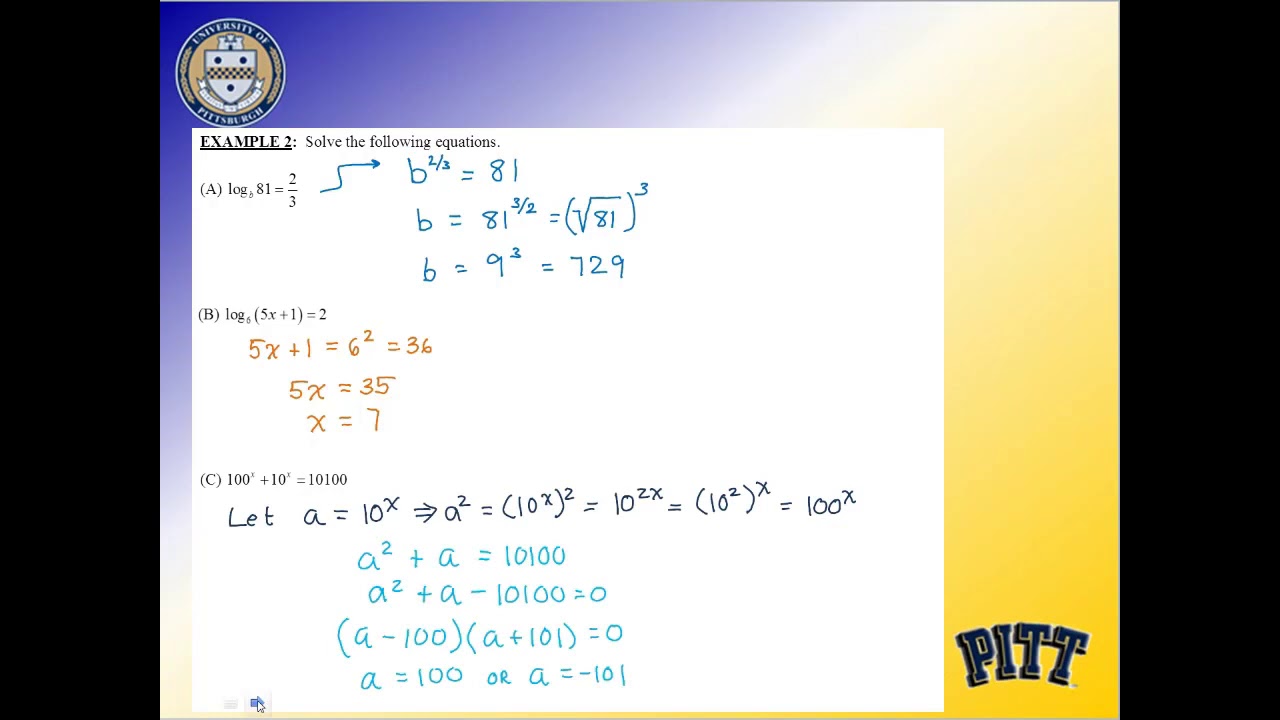 UNIVERSITY OF
PITTSBURGH
EXAMPLE 2: Solve the following equations.
(A) log_b 81 = 2/3
b^{2/3} = 81
b = 81^{3/2} = (√81)^3
b = 9^3 = 729
(B) log_6 (5x + 1) = 2
5x + 1 = 6^2 = 36
5x = 35
x = 7
(C) 100^x + 10^x = 10100
Let a = 10^x ⇒ a^2 = (10^x)^2 = 10^{2x} = (10^2)^x = 100^x
a^2 + a = 10100
a^2 + a − 10100 = 0
(a − 100)(a + 101) = 0
a = 100 OR a = −101
PITT